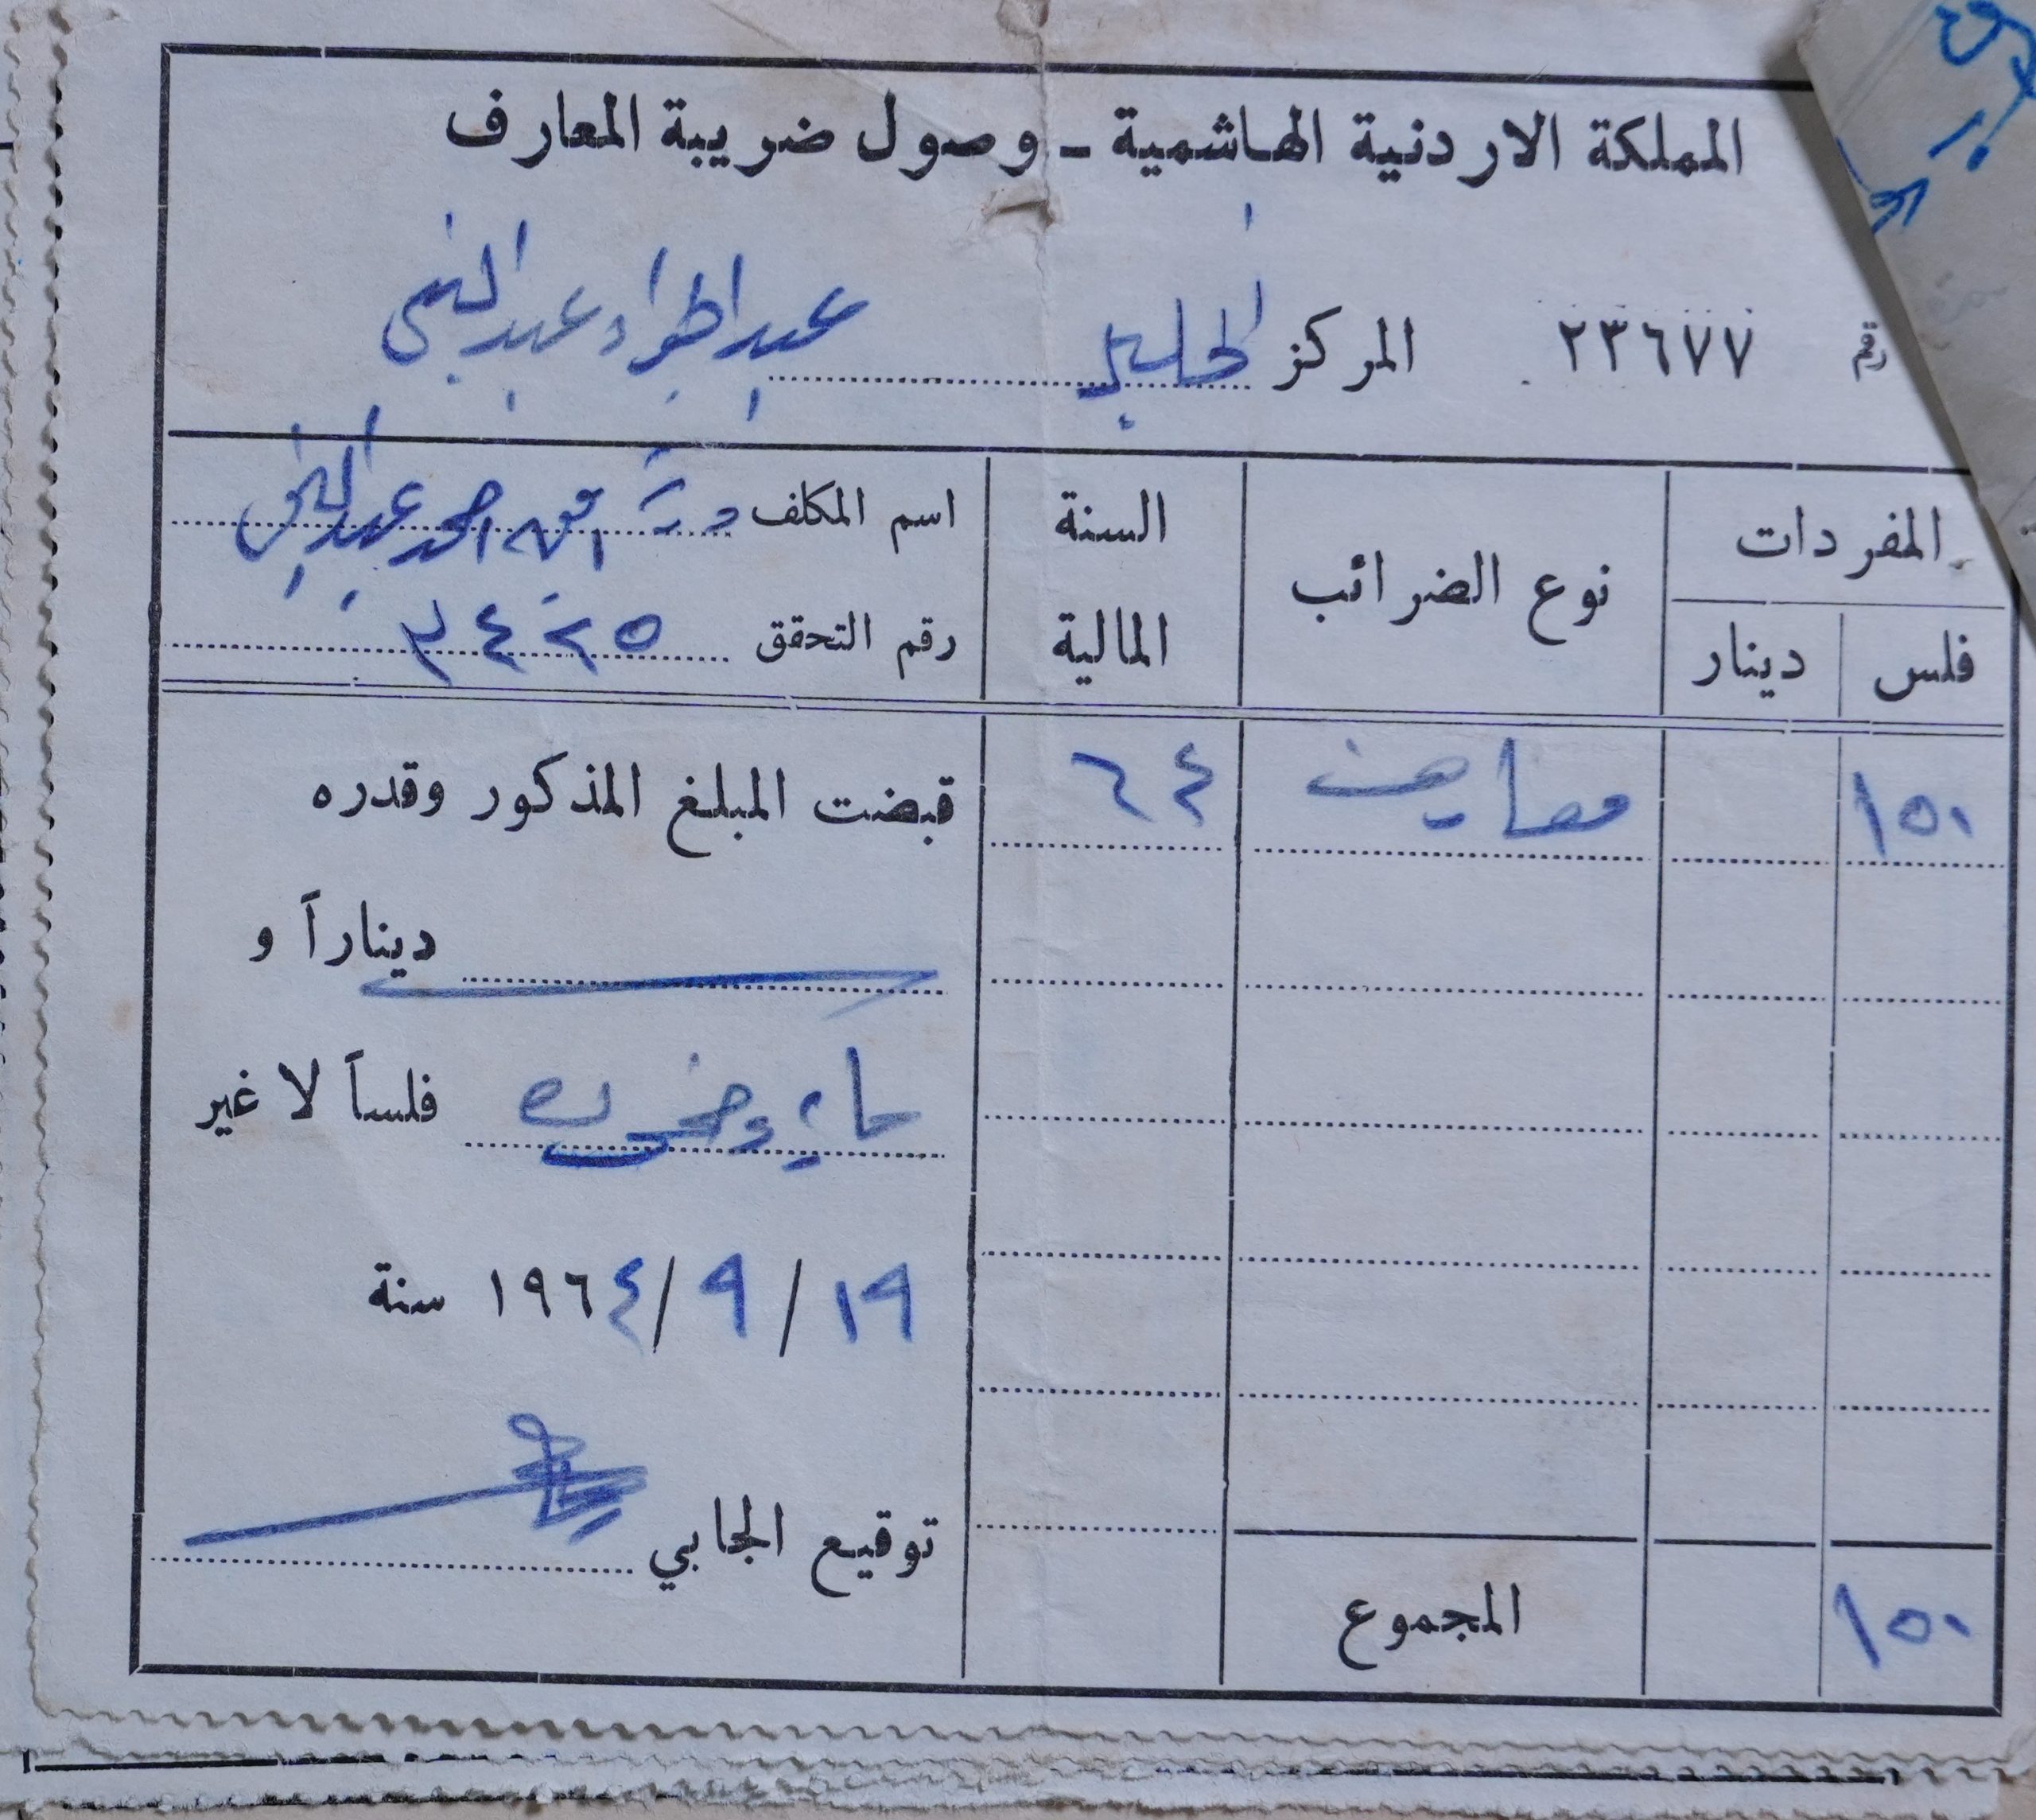 المملكة الاردنية الهاشمية - وصول ضريبة المعارف
رقم ٢٣٦٧٧ المركز الخليل
عبد الجواد عبد النبي
المفردات
فلس دينار
نوع الضرائب
السنة المالية
اسم المكلف ورثة احمد عبد النبي
رقم التحقق ٣٤٢٥
١٥٠ معارف ٦٤
قبضت المبلغ المذكور وقدره
ديناراً و
ماية وخمسون فلساً لا غير
١٩ / ٩ / ١٩٦٤ سنة
توقيع الجابي
المجموع
١٥٠